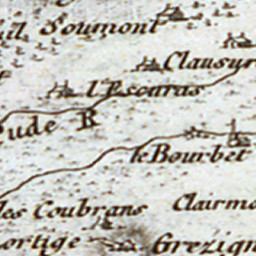 il. Soumont
Clausur
l'Escuras
oude R
le Bourbet
les Coubrans
Clairmo
ortige
Grezign